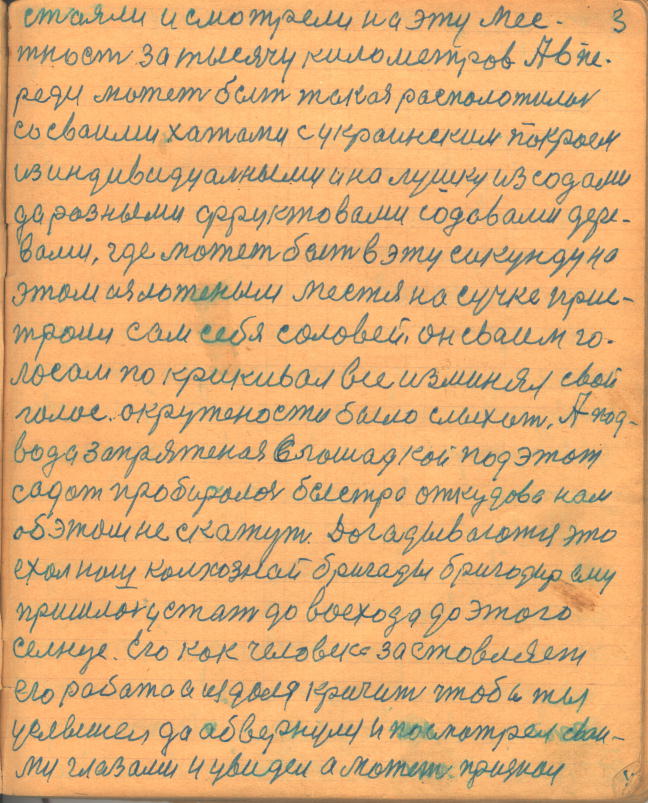 3
стаяли и смотрели на эту мес-
тност за тысячу километров А впе-
реди может быт такая расположилас
со сваими хатами с украинским покроем
из индивидуалными и на лушку из содами
да разными фруктовами содовами дере-
вами, где может быт в эту сикунду на
этом месте на сучке прис-
троил сам себя соловей, он сваим го-
лосам покрикивал все изминял свой
голос. окружености было слыхат, А под-
вода запряженая с лошадкой под этот
садот пробиралоя быстро откудова нам
об этом не скажут. Догадываются это
ехал наш колхозной бригады бригодир ему
пришлос устат до восхода до этого
селнце. Его как человек заставляет
его работа а издаля кричит чтобы ты
услышел да абвернул и посмотрел сваи-
ми глазами и увидел а может признал